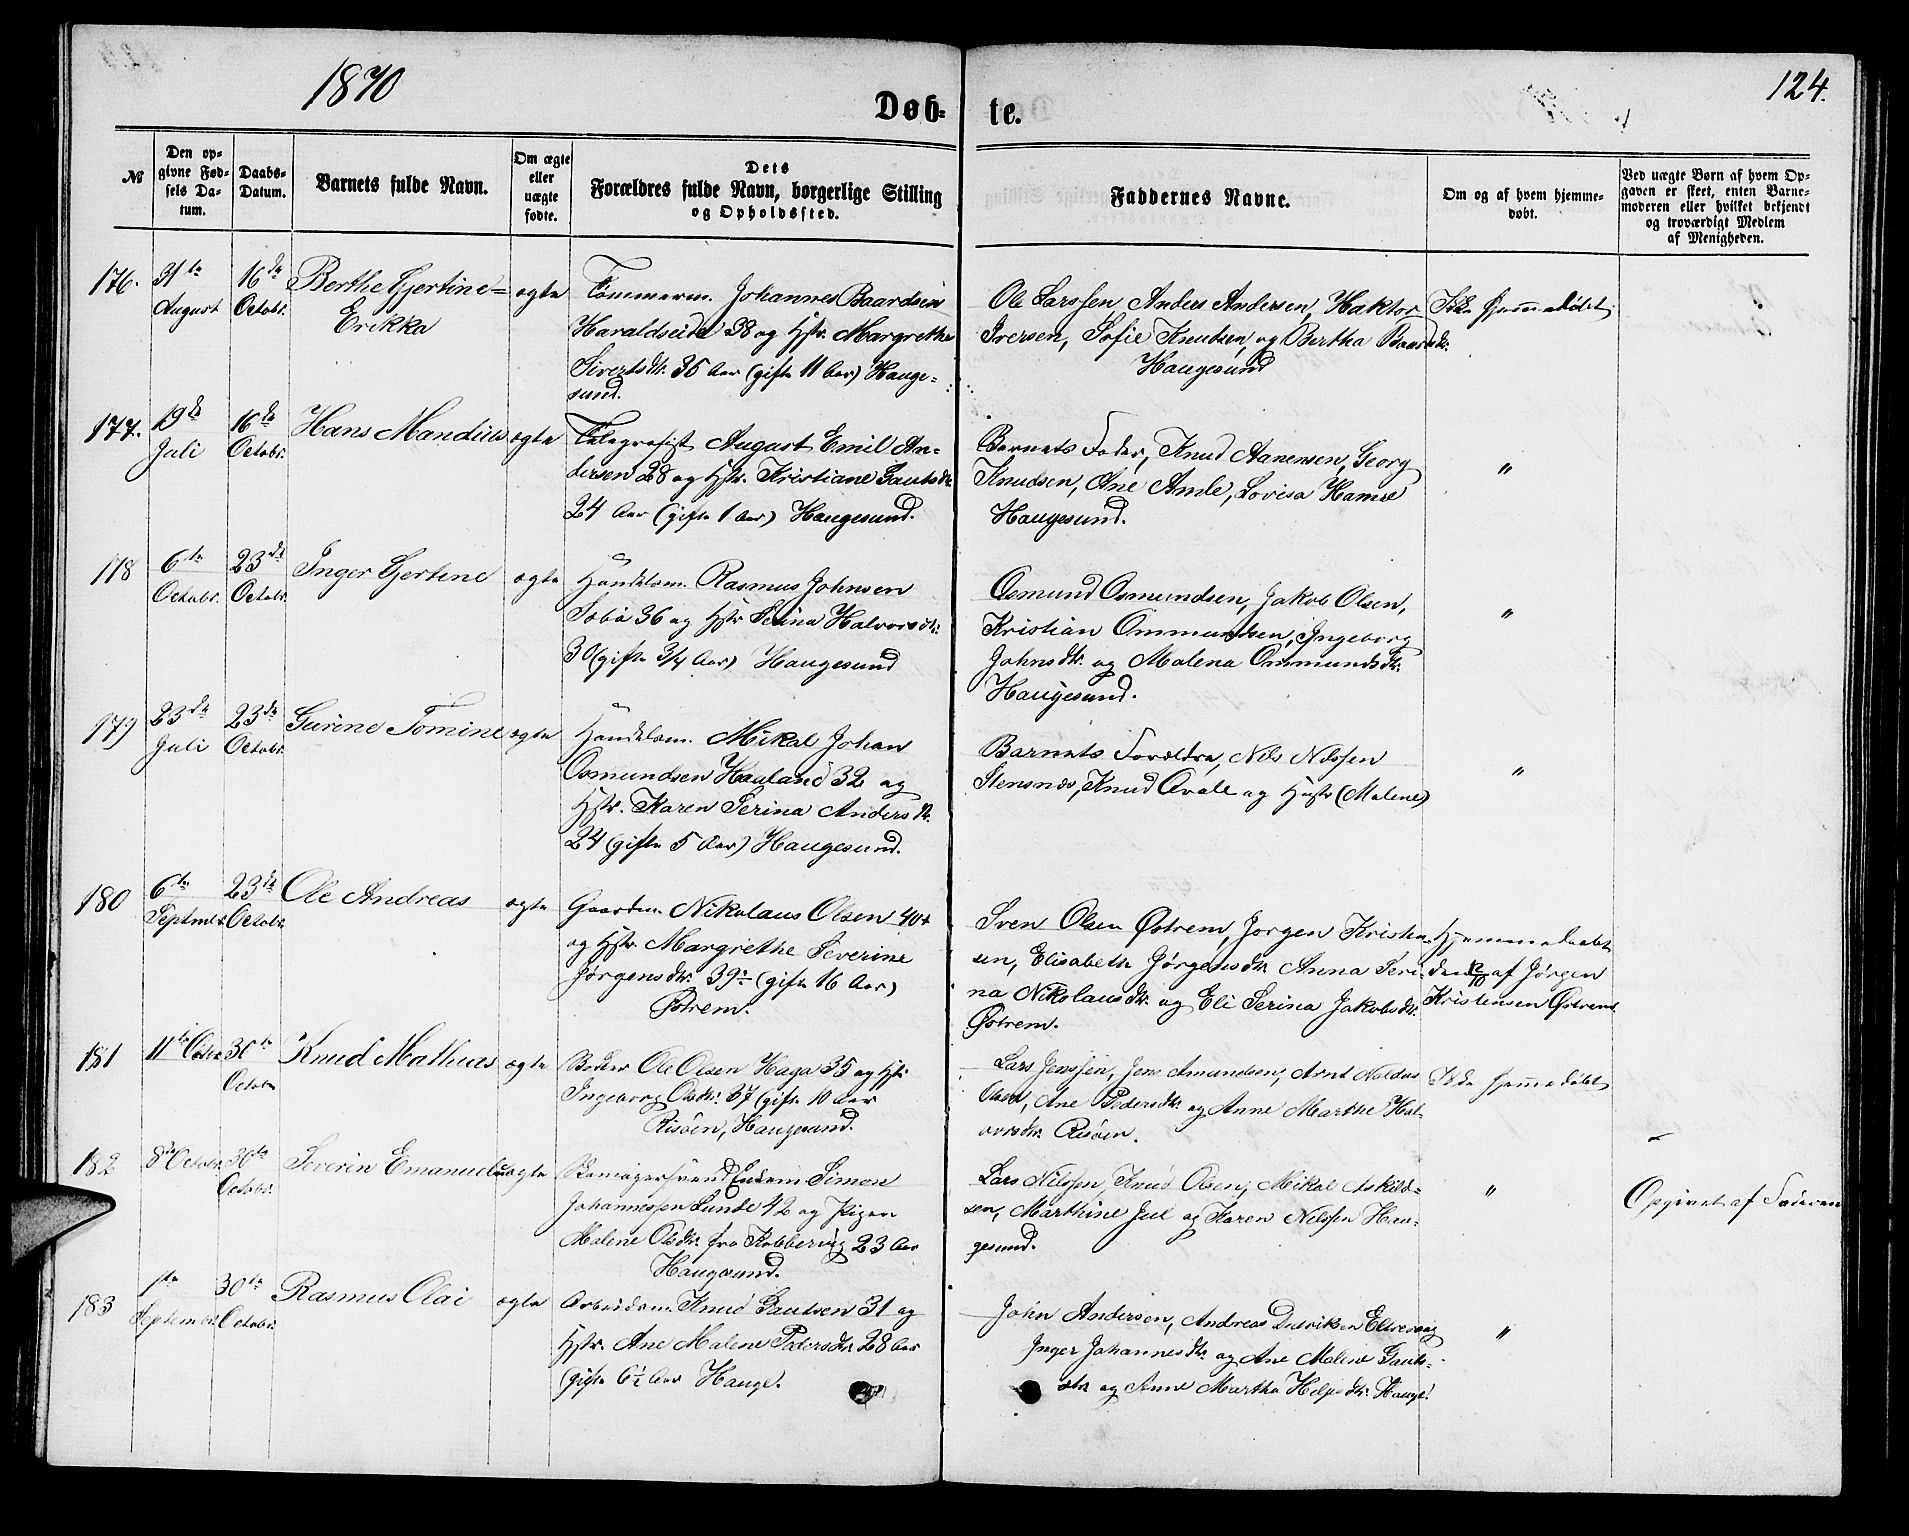 1870
124.
Døb-
te.
№
Den op-
givne Fød-
sels Da-
tum.
Daabs-
Datum.
Barnets fulde Navn.
Om ægte
eller
uægte
fødte.
Dets
Forældres fulde Navn, borgerlige Stilling
og Opholdssted.
Faddernes Navne.
Om og af hvem hjemme-
døbt.
Ved uægte Børn af hvem Op-
gaven er skeet, enten Barne-
moderen eller hvilket bekjendt
og troværdigt Medlem
af Menigheden.
176.
31te
August
16de
Octobr.
Berthe Gjertine=
Erikka
ægte
Tømmerm. Johannes Baardsen
Haraldseide 38 og Hstr. Margrethe
Sivertsdtr. 35 Aar (gifte 11 Aar) Hauge-
sund.
Ole Larssen Anders Andersen, Haktor
Iversen, Sofie Knutsen, og Bertha Baardsdtr.
Haugesund
Ikke hjemmedøbt
177.
19de
Juli
16de
Octobr.
Hans Mandius
ægte
Telegrafist August Emil An-
dersen 28 og Hstr. Kristiane Gautsdtr
24 Aar (gifte 1 Aar) Haugesund.
Barnets Fader, Knud Aanensen, Georg
Knudsen, Ane Amle, Lovisa Hamre
Haugesund.
"
118
6te
Octobr.
23de
Octobr.
Inger Gjertine
ægte
Handelsm. Rasmus Johnsen
Sæbø 36 og Hstr Serina Halvorsdtr:
30 (gifte 3/4 Aar) Haugesund
Osmund Osmundsen, Jakob Olsen,
Kristian Ommundsen, Ingeborg
Johnsdtr. og Malena Ommundsdtr.
Haugesund.
"
179
23de
Juli
23de
Octobr.
Gurine Tomine
ægte
Handelsm. Mikal Johan
Osmundsen Hauland 32 og
Hstr. Karen Serina Andersdtr.
24 (gifte 5 Aar) Haugesund.
Barnets Forældre, Nils Nilssen
Stensnæs, Knud Qvale og Hustr (Malene)
"
180
6te
Septmbr
23de
Octobr.
Ole Andreas
ægte
Gaardm. Nikolaus Olsen 40
og Hstr. Margrethe Severine
Jørgensdtr. 39 (gifte 16 Aar)
Østrem.
Sven Olsen Østrem, Jørgen Kristen-
sen, Elisabeth Jørgensdtr Anna Seri-
na Nikolausdtr. og Eli Serina Jakobsdtr.
Østrem.
Hjemmedøbt
den af Jørgen
Kristensen Østrem
181
11te Octbr
30te
Octobr
Knud Mathias
ægte
Bødker Ole Olsen Haga 35 og Hstr
Ingeborg Olsdtr. 37 (gifte 10 Aar
Risøen, Haugesund.
Lars Jenssen, Jens Amundsen, Arnt Naldus
Olsen, Ane Pedersdtr. og Anne Marthe Hal-
vorsdtr. Risøen.
Ikke hjemmedøbt
182
8de Octobr.
30te
Octobr.
Severin Emanuel
uægte
Skomagersvend Enkem Simon
Johannessen Lunde 42 og Pigen
Malene Olsdtr. fra Kobbervig 23 Aar
Haugesund.
Lars Nilssen, Knud Olsen, Mikal Askild-
sen, Marthine Juel og Karen Nilssen Hau-
gesund.
"
Opgivet af Faderen
183
1ste
September
30te
Octobr.
Rasmus Olai
ægte
Arbeidsm. Knud Gautsen 31 og
Hstr. Ane Malene Pedersdtr. 28 Aar
(gifte 6½ Aar Hauge.
John Andersen, Andreas
Inger Johannesdtr. og Ane Malene Gauts-
dtr og Anne Martha Hauge.
"